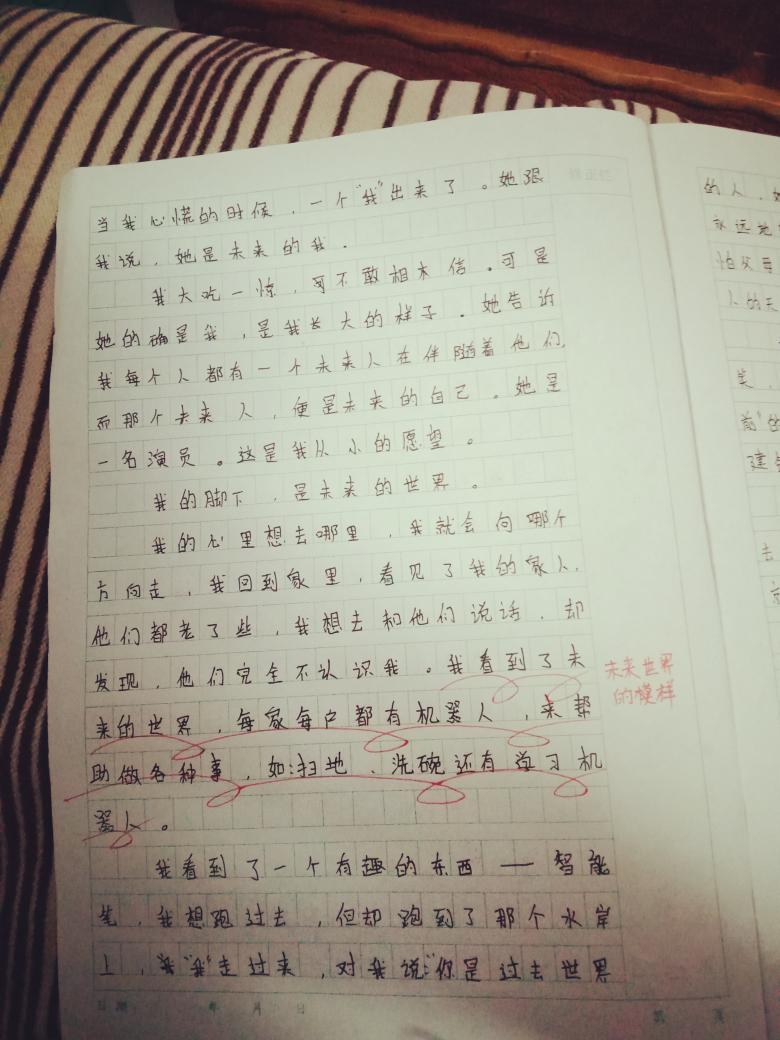 当我心慌的时候，一个“我”出来了。她跟
我说，她是未来的我．
我大吃一惊，可不敢相木信。可是
她的确是我，是我长大的样子。她告诉
我每个人都有一个未来人在伴随着他们，
而那个未来人，便是未来的自己。她是
一名演员。这是我从小的愿望。
我的脚下，是未来的世界。
我的心里想去哪里，我就会向哪个
方向走，我回到家里，看见了我的家人，
他们都老了些，我想去和他们说话，却
发现，他们完全不认识我。我看到了未
来的世界，每家每户都有机器人，来帮
助做各种事，如：扫地、洗碗还有学习机
器人。
未来世界
的模样
我看到了一个有趣的东西——智能
笔，我想跑过去，但却跑到了那个水岸
上，“我”走过来，对我说：“你是过去世界
日期 年 月 日
第 页
的人，她
永远地
怕父母
人的天
笑，
前”的
建
去